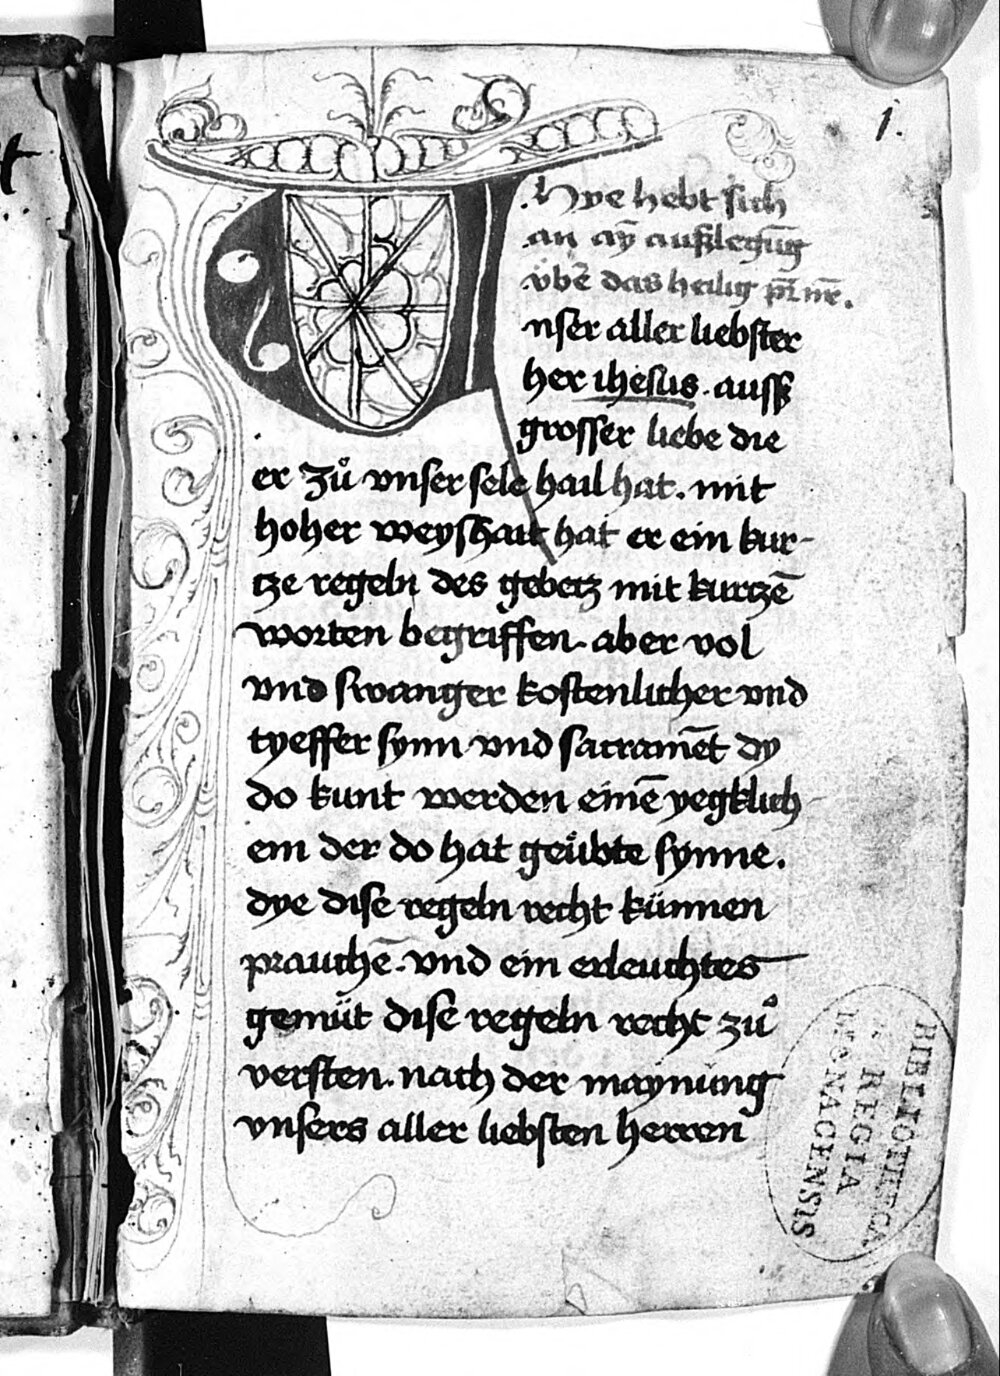 1.
Hye hebt sich
an aȳ auslegūg
v̈be̅ das heilig p̅r nr̅.
Vnser aller liebster
her ihesus. auss
grosser liebe die
er zů vnser sele hail hat. mit
hoher weyshait hat er ein kur-
tze regeln des gebetz mit kurtze̅
worten begriffen. aber vol
vnd swanger kostenlicher vnd
tyeffer synn vnd sacrame̅t dy
do kunt werden eine̅ yegklich
em der do hat geübte synne.
dye dise regeln recht künnen
prauche̅. vnd ein erleuchtes
gemüt dise regeln recht zů
versten. nach der maynung
vnsers aller liebsten herren
BIBLIOTHECA
REGIA
MONACENSIS